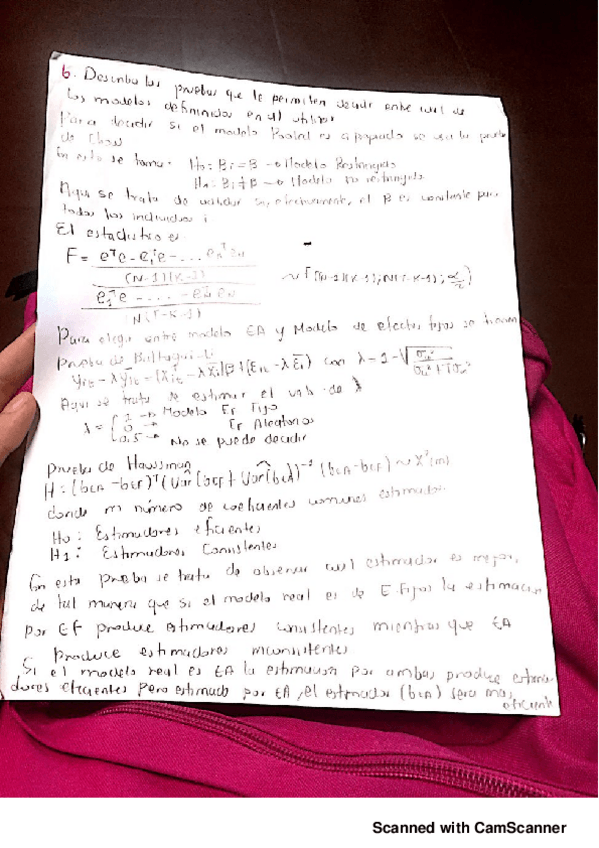 6. Describa las pruebas que le permiten decidir entre cual de
los modelos definidos en utilizar
Para decidir si el modelo Pooled es apropiado se usa la prueba
de Chow
En esto se toma: H0: Bi = B → Modelo Restringido
HA: Bi ≠ B → Modelo no restringido
Aqui se trata de validar si, efectivamente, el B es constante para
todos los individuos i
El estadistico es
F = eᵀe - e₁ᵀe - ... eₙᵀeₙ
(N-1)(K-1)
e₁ᵀe - ... - eₙᵀeₙ
N(T-K-1)
~ F((N-1)(K-1); N(T-K-1); α/2)
Para elegir entre modelo EA y Modelo de efectos fijos se tienen
Prueba de
Yit - λȳi = (Xit - λX̄i)β + (Eit - λĒi) con λ - 1 - √σu²/σu² + Tσα²
Aqui se trata de estimar el valor de λ
λ = { 1 → Modelo Ef Fijo
0 → Ef Aleatorios
0,5 → No se puede decidir
Prueba de Haussman
H = (bEA - bEF)ᵀ (Var(bEF) + Var(bEA))⁻¹ (bEA - bEF) ~ X²(m)
donde m número de coeficientes comunes estimados
H0: Estimadores eficientes
H1: Estimadores Consistentes
En esta prueba se trata de observar cual estimador es mejor,
de tal manera que si el modelo real es de E-Fijos la estimacion
por EF produce estimadores consistentes mientras que EA
produce estimadores inconsistentes
Si el modelo real es EA la estimacion por ambas produce estima
dores eficientes pero estimado por EA, el estimador (bEA) sera mas
eficiente
Scanned with CamScanner